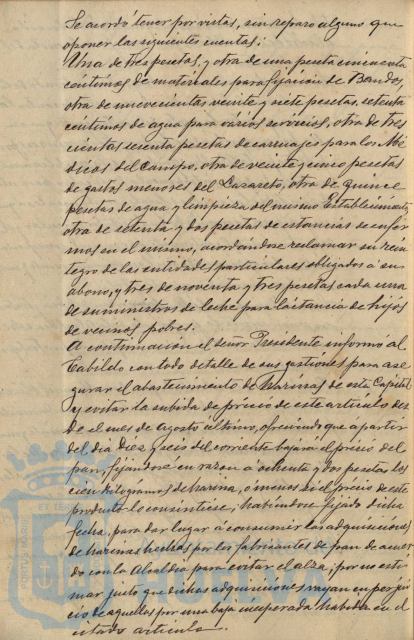 Se acordó tener por vistas, sin reparo alguno que
oponer las siguientes cuentas;
Una de tres pesetas, y otra de una peseta cincuenta
centimos de materiales para fijacion de Bandos,
otra de nuevecientas veinte y siete pesetas, setenta
centimos de agua para varios servicios, otra de tres
cientas sesenta pesetas de carruajes para los Mé
dicos del Campo, otra de veinte y cinco pesetas
de gastos menores del Lazareto, otra de quince
pesetas de agua y limpieza del mismo Establecimiento
otra de setenta y dos pesetas de estancias de enfer
mos en el mismo, acordándose reclamar su rein
tegro de las entidades particulares obligadas á su
abono, y tres de noventa y tres pesetas cada una
de suministros de leche para lactancia de hijos
de vecinos pobres.
A continuacion el señor Presidente informó al
Cabildo con todo detalle de sus gestiones para ase
gurar el abastecimiento de harinas de esta Capital
y evitar la subida de precio de este articulo des
de el mes de Agosto ultimo, ofreciendo que a partir
del dia diez y seis del corriente bajará el precio del
pan fijándose en razon a ochenta y dos pesetas los
cien kilógramos de harina, ó menos si el precio de este
producto lo consintiese; habiéndose fijado dicha
fecha, para dar lugar á consumir las adquisiciones
de harinas hechas por los fabricantes de pan de acuer
do con la Alcaldia para evitar el alza, por no esti
mar justo que dichas adquisiciones vayan en perjui
cio de aquellos por una baja inesperada habida en el
citado articulo.
PORTUS MARIS ET TER